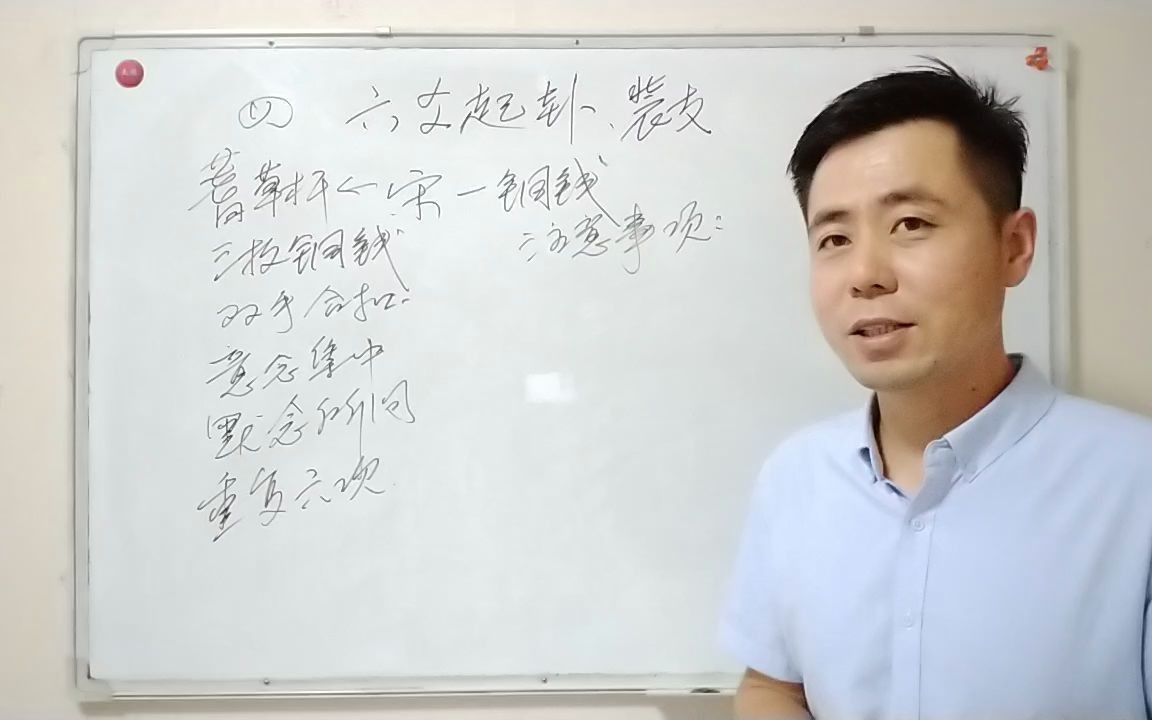 四 六爻起卦、装支
蓍草杆<宋-铜钱
三枚铜钱
注意事项:
双手合扣
意念集中
默念所问
重复六次